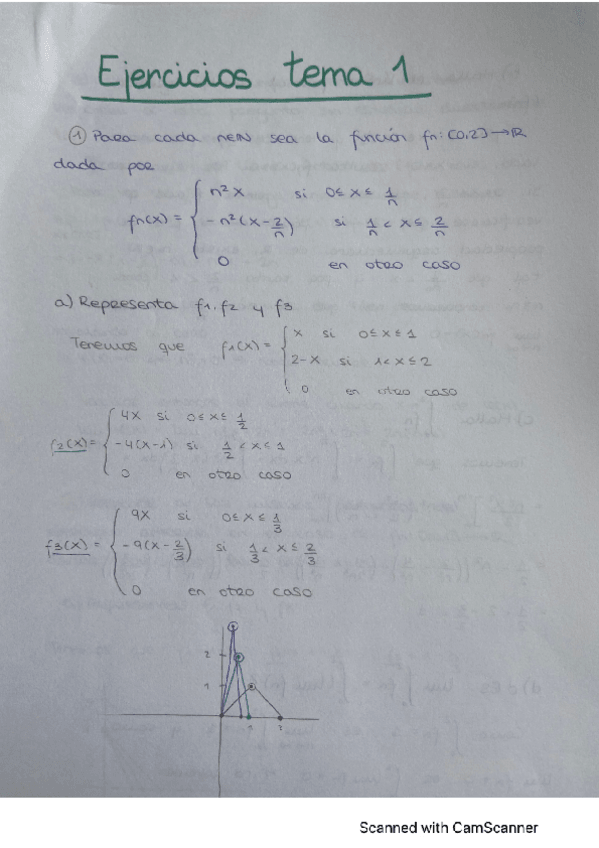 Ejercicios tema 1
① Para cada n∈ℕ sea la función fn: [0,2] → ℝ
dada por
fn(x) = { n²x si 0 ≤ x ≤ 1/n
-n²(x - 2/n) si 1/n < x ≤ 2/n
0 en otro caso
a) Representa f1, f2 y f3
Tenemos que f1(x) = { x si 0 ≤ x ≤ 1
2-x si 1 < x ≤ 2
0 en otro caso
f2(x) = { 4x si 0 ≤ x ≤ 1/2
-4(x-1) si 1/2 < x ≤ 1
0 en otro caso
f3(x) = { 9x si 0 ≤ x ≤ 1/3
-9(x - 2/3) si 1/3 < x ≤ 2/3
0 en otro caso
2
1
1 2
Scanned with CamScanner